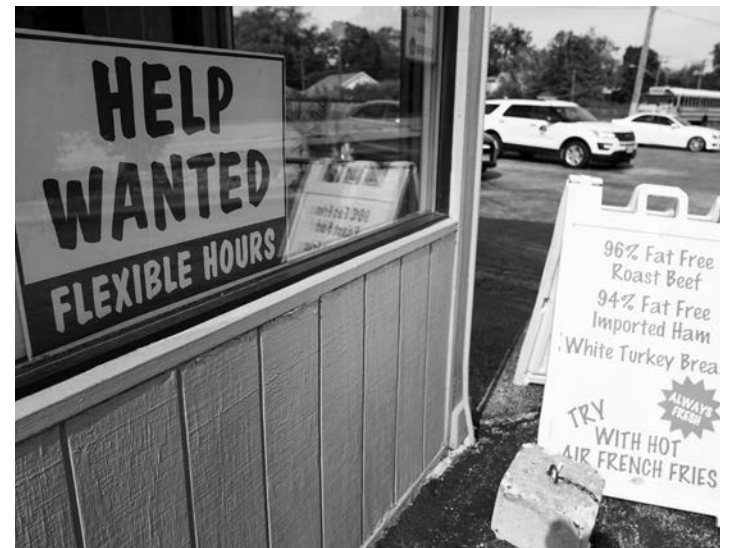 HELP
WANTED
FLEXIBLE HOURS
96% Fat Free
Roast Beef
94% Fat Free
Imported Ham
White Turkey Brea
ALWAYS
FRESH
TRY
WITH HOT
AIR FRENCH FRIES